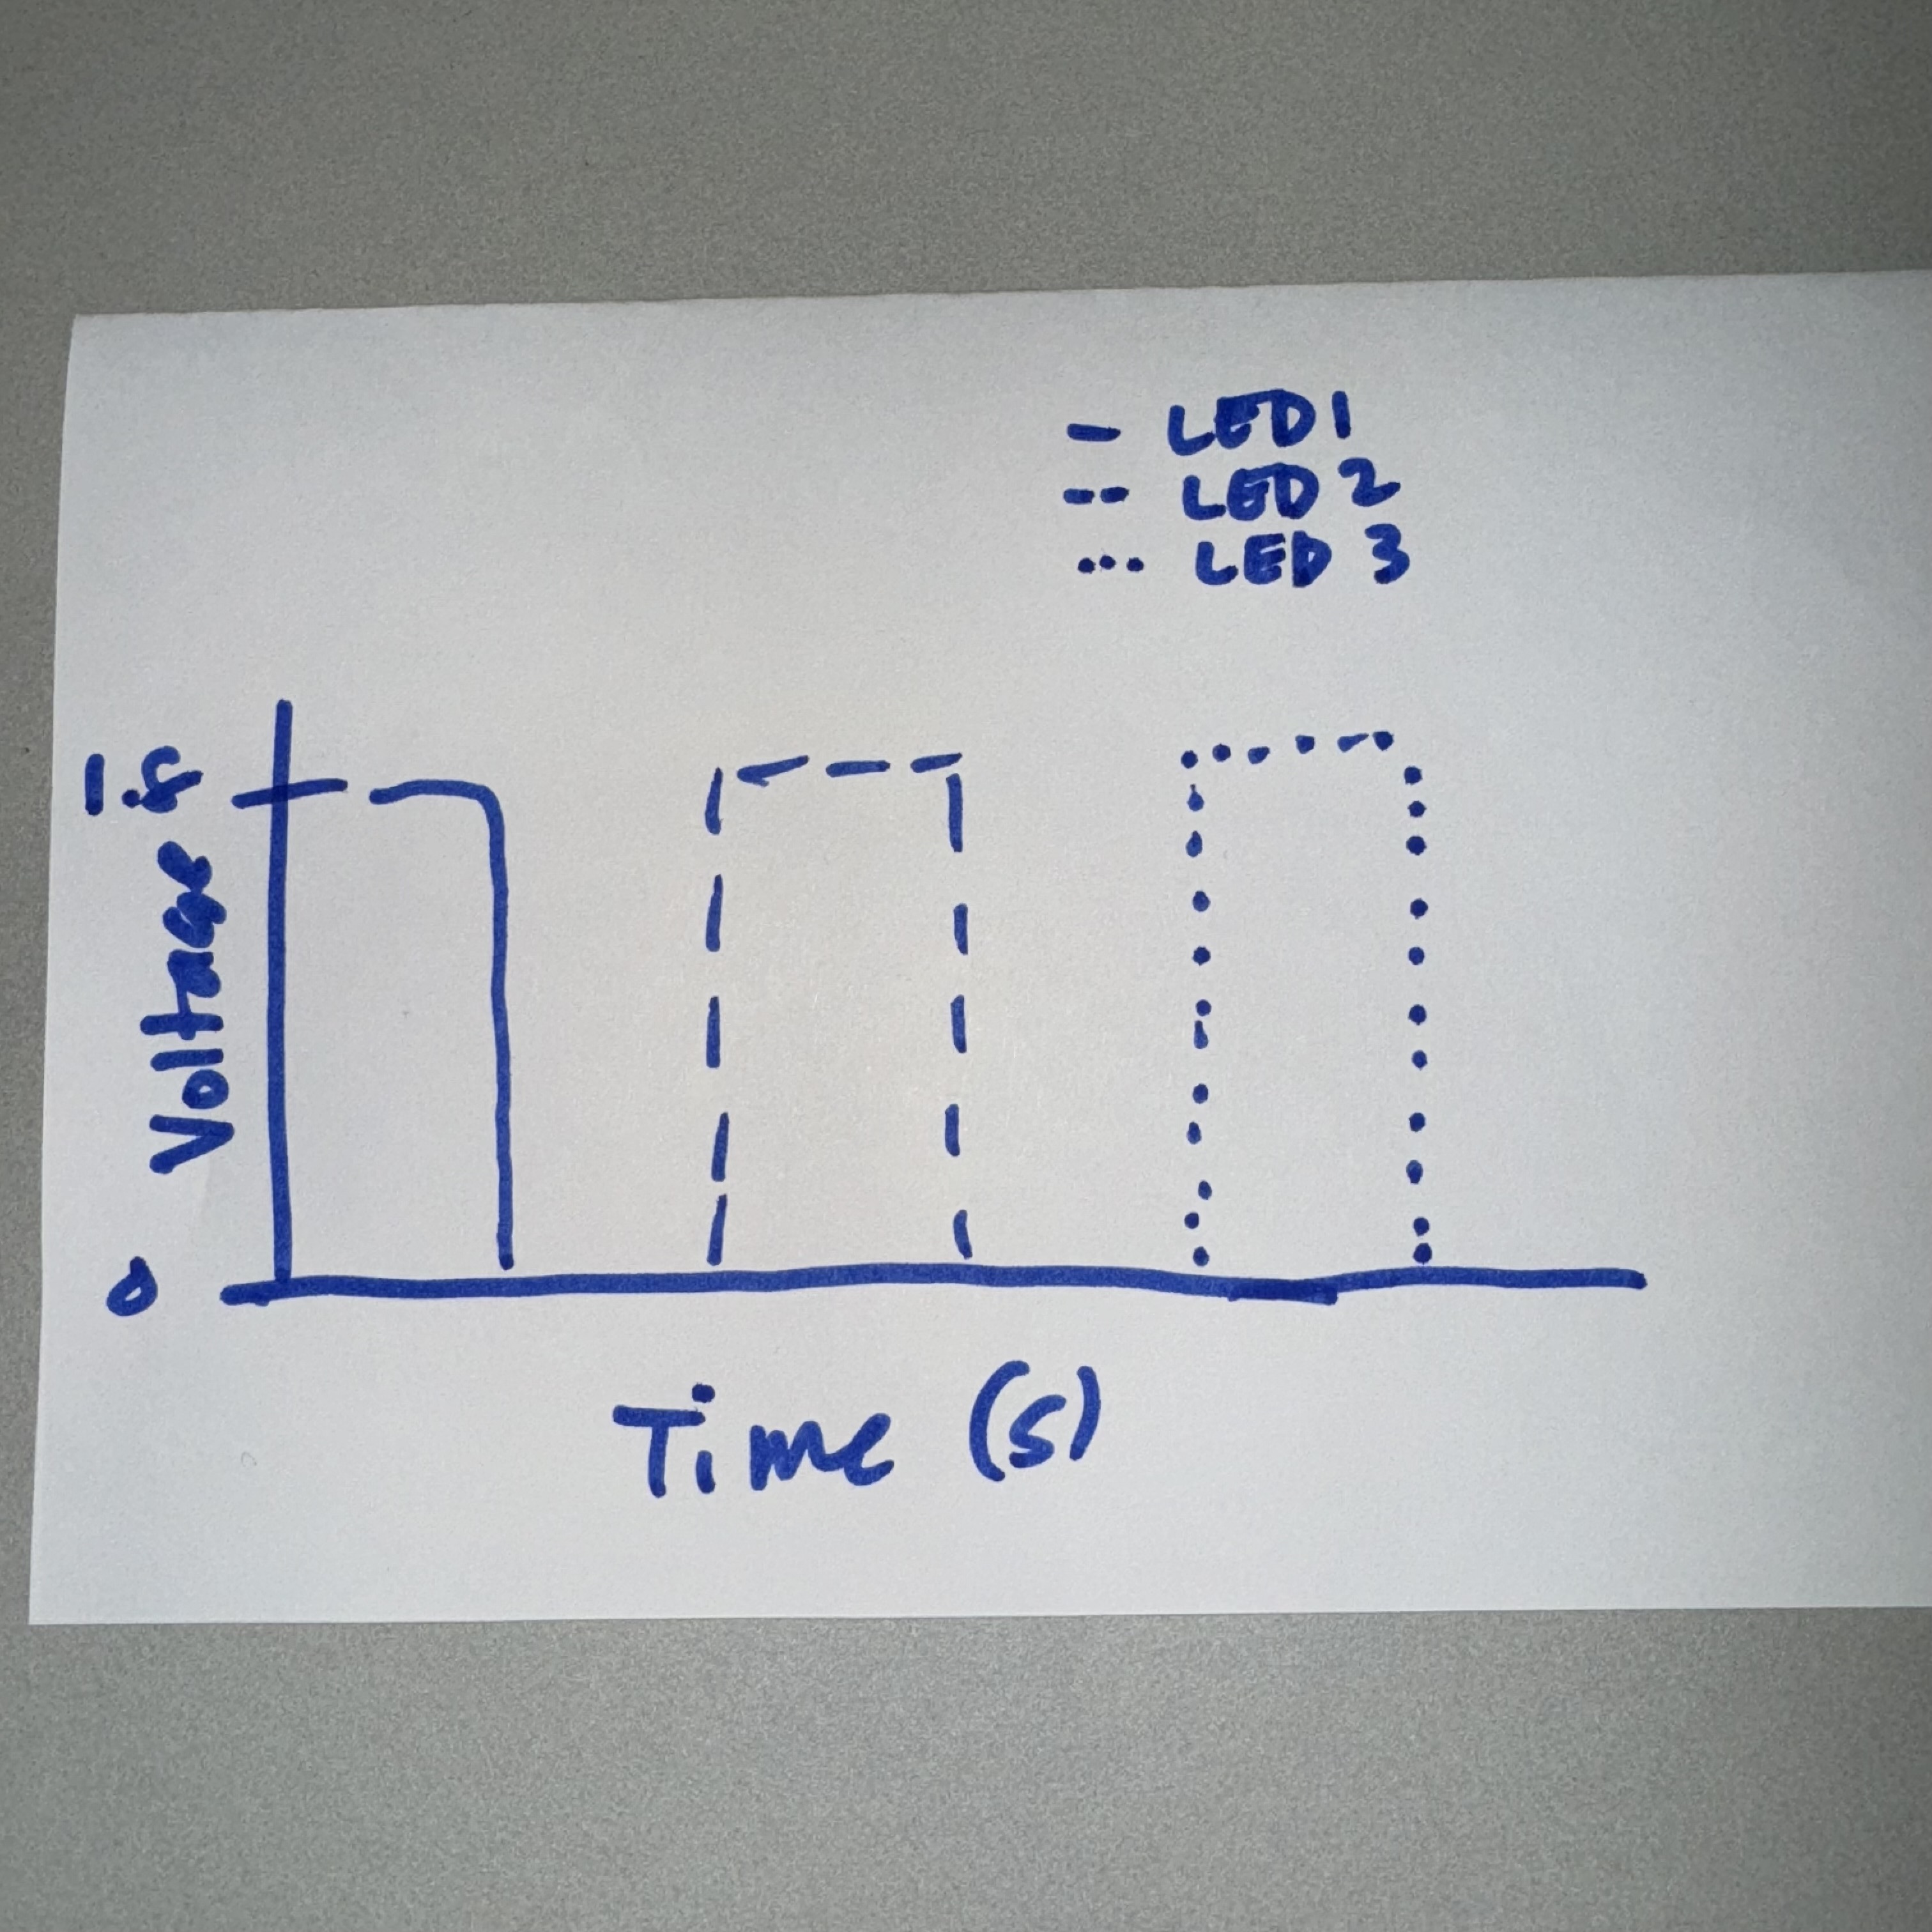 LED1
LED 2
LED 3
1.8
Voltage
0
Time (s)